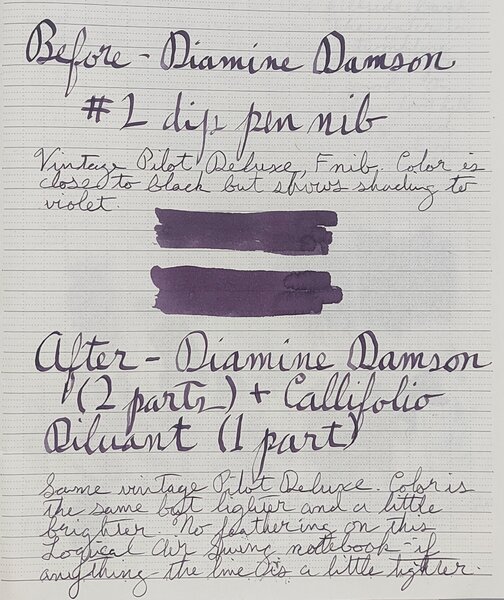 Before - Diamine Damson
#2 dip pen nib
Vintage Pilot Deluxe, F nib. Color is
close to black but shows shading to
violet
After - Diamine Damson
(2 parts) + Callifolio
Diluant (1 part)
Same vintage Pilot Deluxe. Color is
the same but lighter and a little
brighter. No feathering on this
Logical Air Swing notebook - if
anything the line is a little tighter.